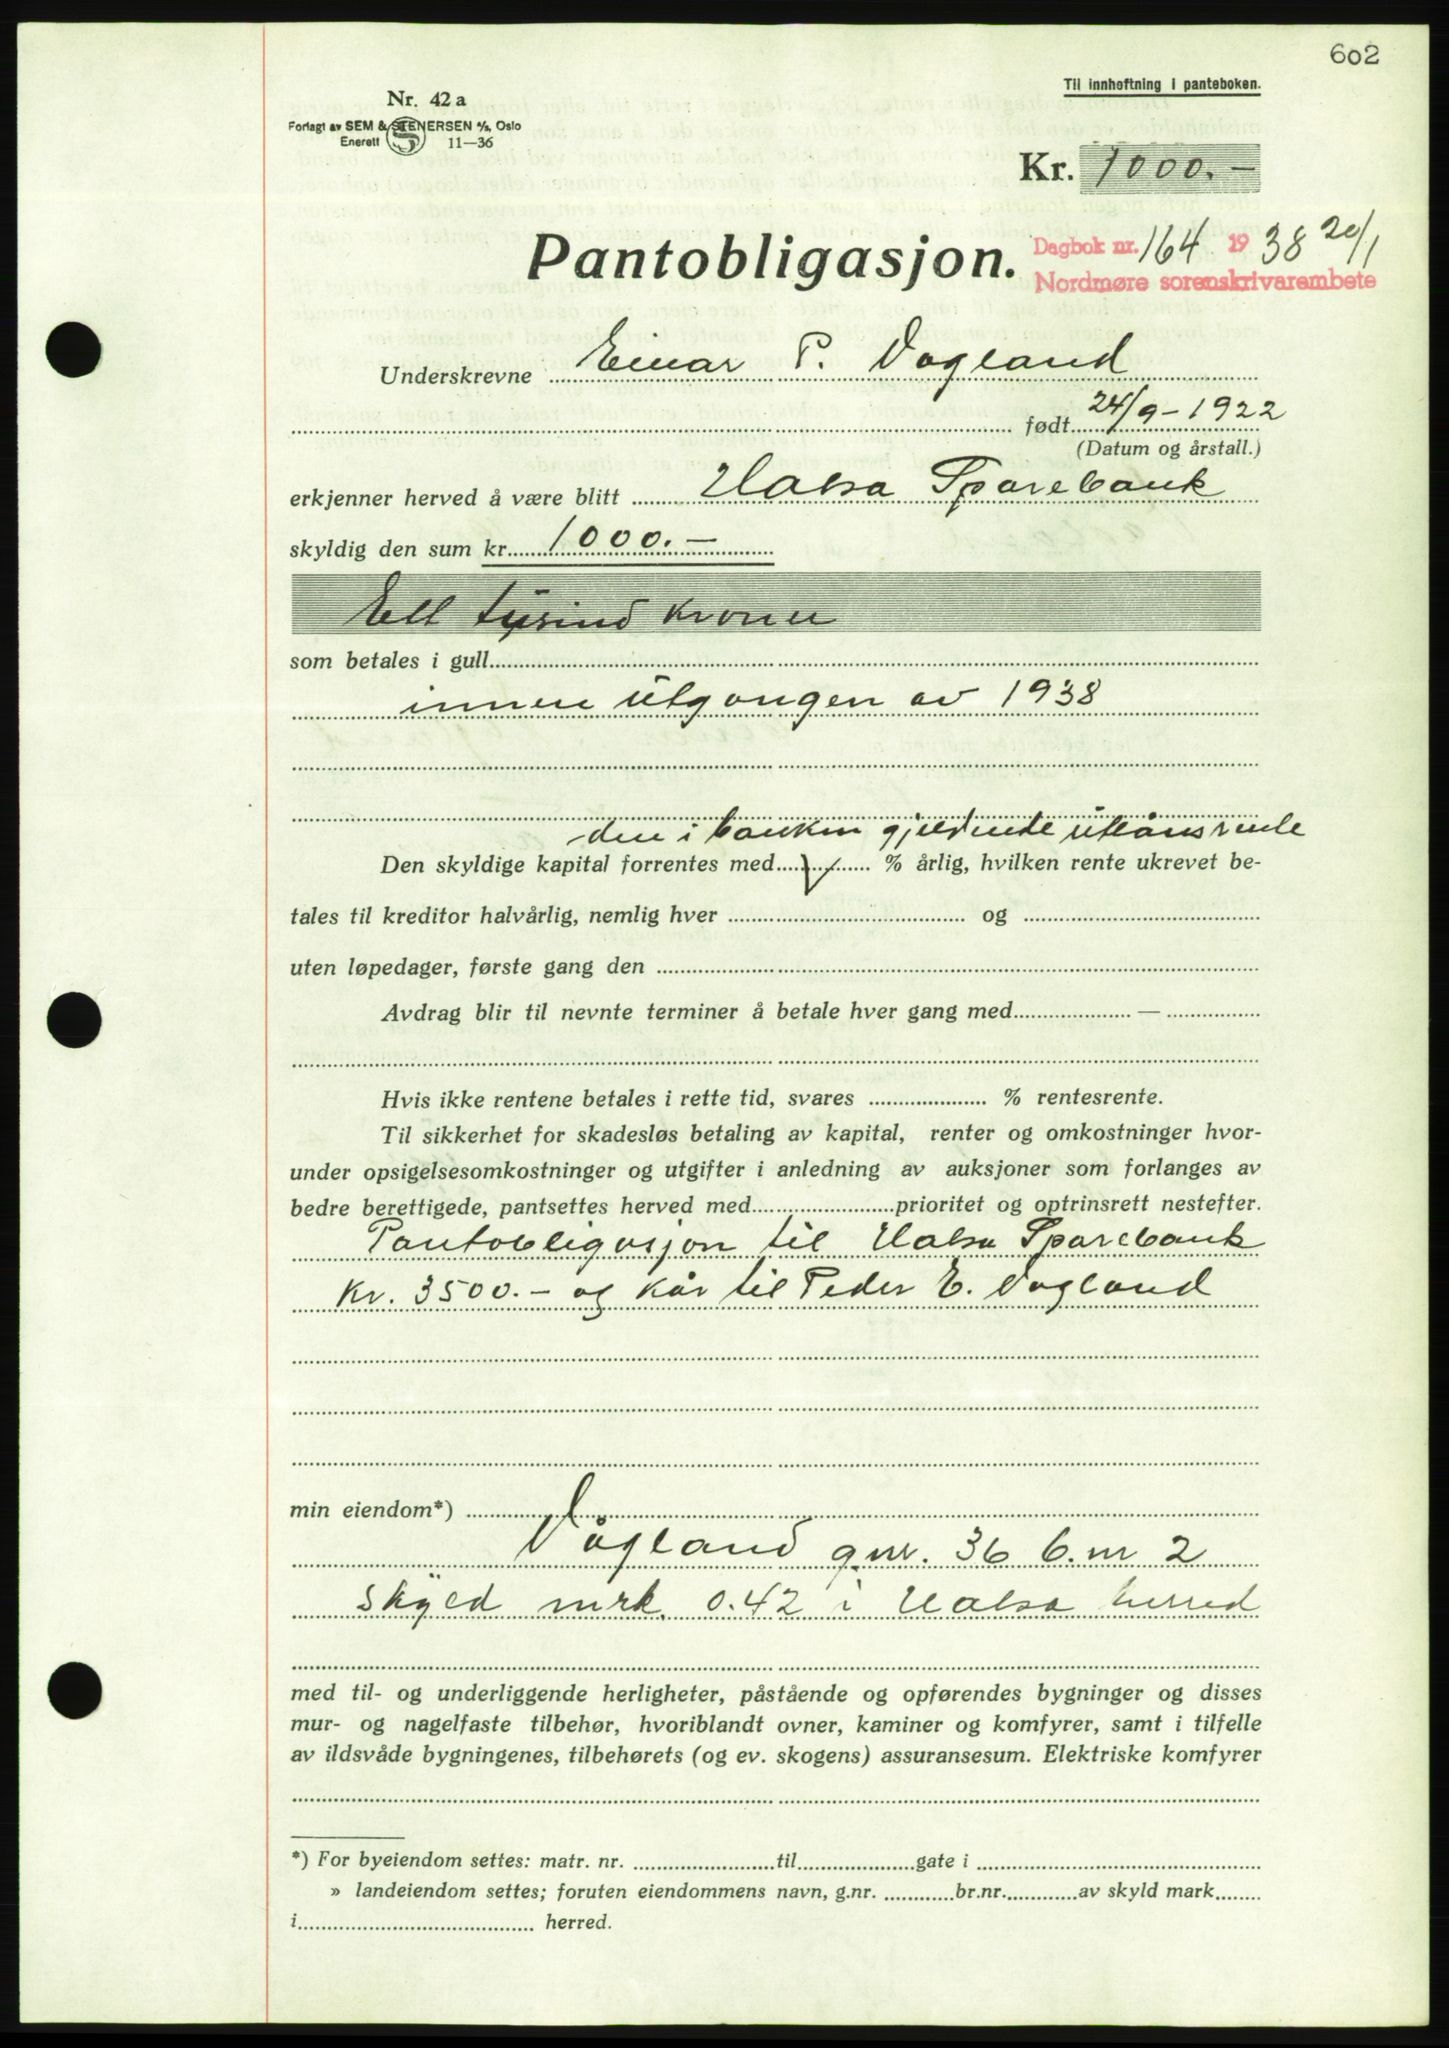 602
Til innheftning i panteboken.
Nr. 42 a
Forlagt av SEM & STENERSEN A/S, Oslo
Enerett 11—36
Kr. 1000.-
Pantobligasjon.
Dagbok nr. 164 1938 20/1
Nordmøre sorenskrivarembete
Underskrevne Einar P. Vågland
født 24/9-1922
(Datum og årstall.)
erkjenner herved å være blitt Halsa Sparebank
skyldig den sum kr. 1000.-
Ett tusind kroner
som betales i gull
innen utgangen av 1938
den i banken gjeldende utlånsrente
Den skyldige kapital forrentes med % årlig, hvilken rente ukrevet be-
tales til kreditor halvårlig, nemlig hver og
uten løpedager, første gang den
Avdrag blir til nevnte terminer å betale hver gang med —
Hvis ikke rentene betales i rette tid, svares % rentesrente.
Til sikkerhet for skadesløs betaling av kapital, renter og omkostninger hvor-
under opsigelsesomkostninger og utgifter i anledning av auksjoner som forlanges av
bedre berettigede, pantsettes herved med prioritet og optrinsrett nestefter.
Pantobligasjon til Halsa Sparebank
Kr. 3500.- og kår til Peder E. Vågland
min eiendom*)
Vågland g.nr. 36 b.nr 2
skyld mrk. 0.42 i Halsa herred
med til- og underliggende herligheter, påstående og opførendes bygninger og disses
mur- og nagelfaste tilbehør, hvoriblandt ovner, kaminer og komfyrer, samt i tilfelle
av ildsvåde bygningenes, tilbehørets (og ev. skogens) assuransesum. Elektriske komfyrer
*) For byeiendom settes: matr. nr. til gate i
» landeiendom settes; foruten eiendommens navn, g.nr. br.nr. av skyld mark
i herred.